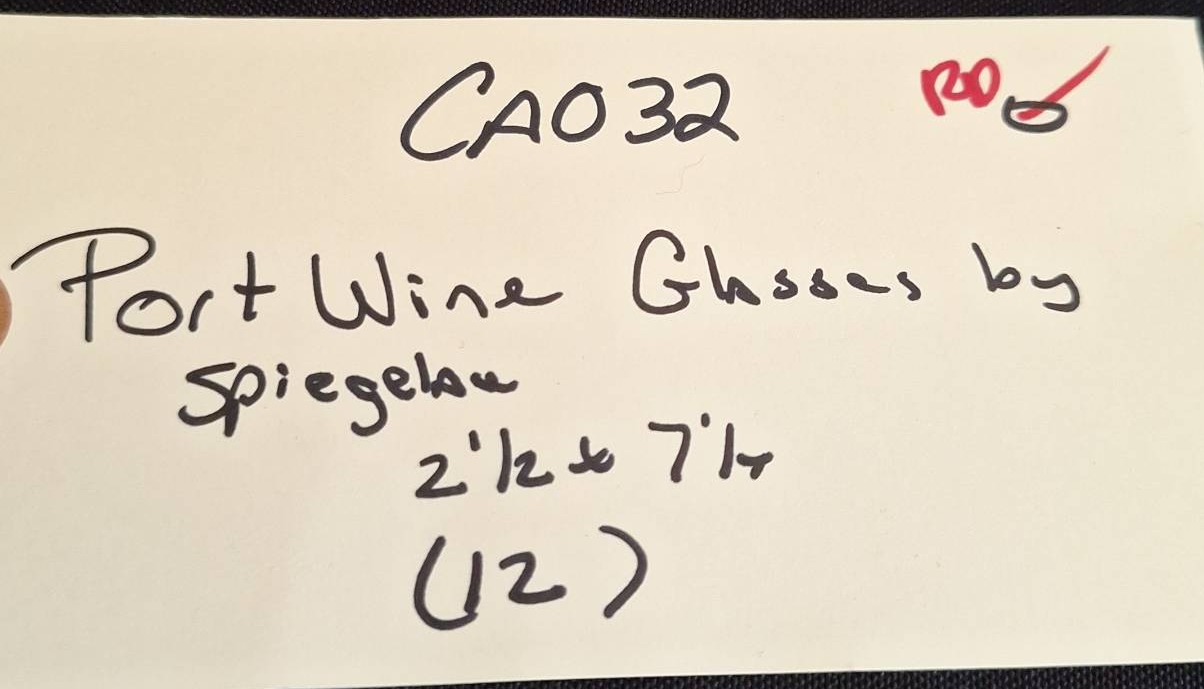 CA032 RD
Port Wine Glasses by
Spiegelau
2 1/2 x 7 1/4
(12)